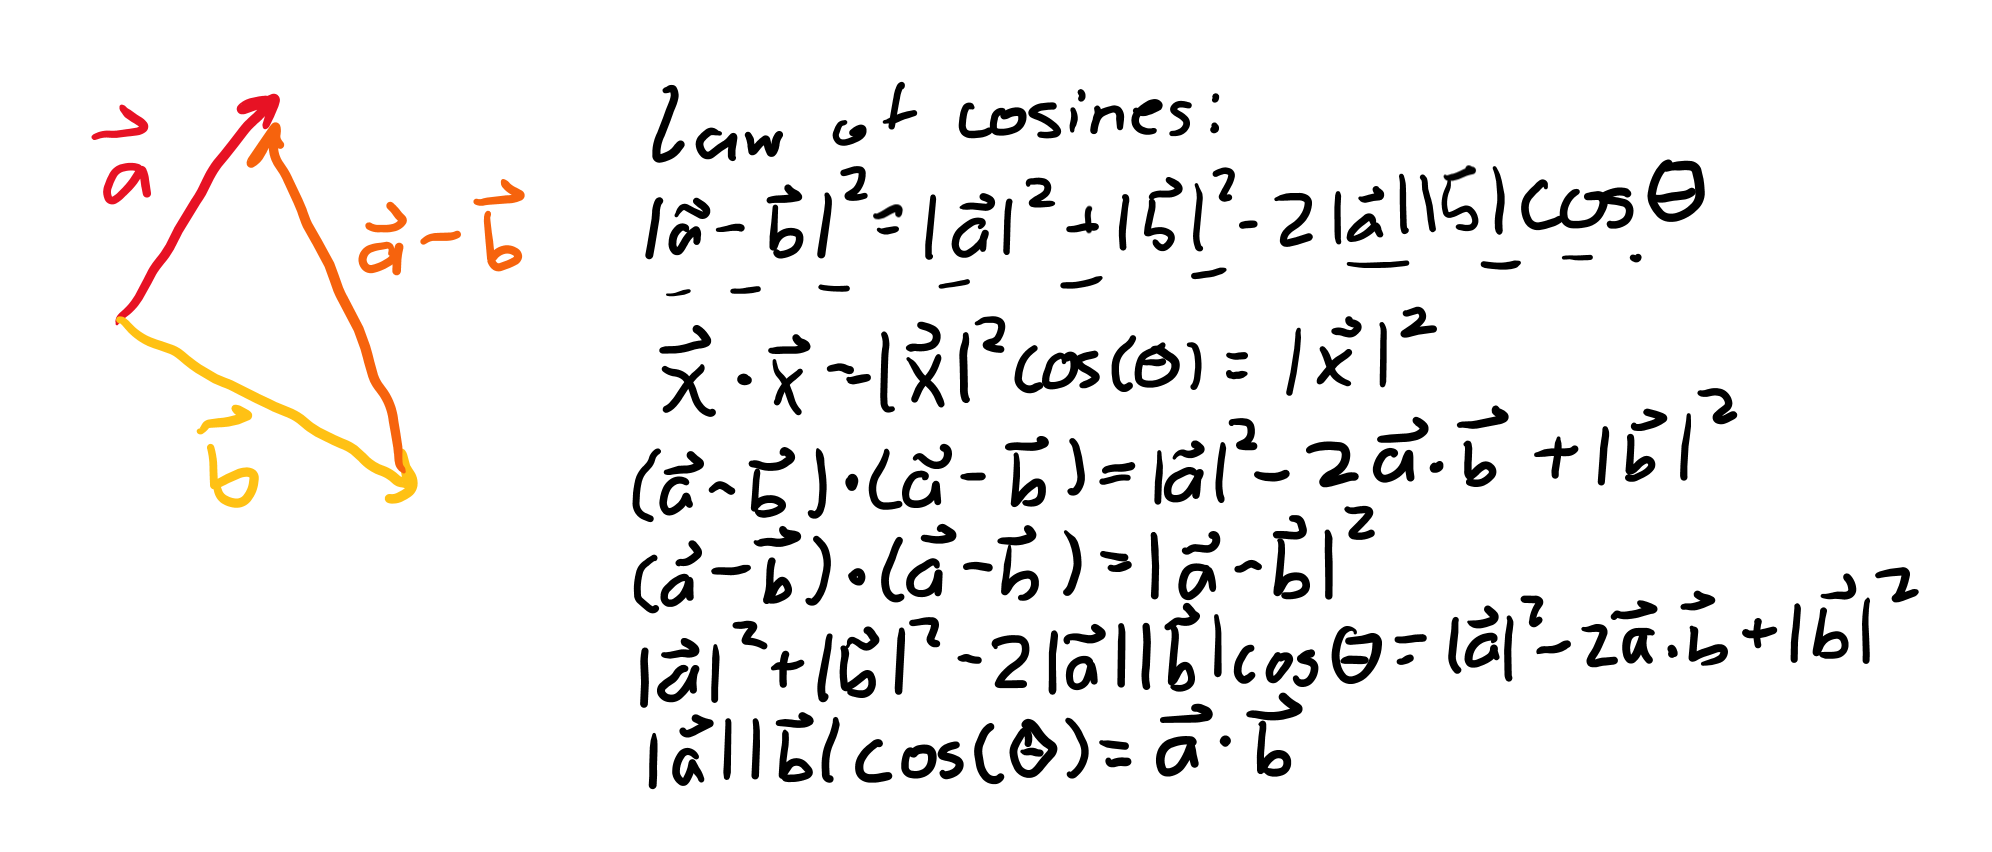 a⃗
a⃗ - b⃗
b⃗
law of cosines:
|a⃗ - b⃗|² = |a⃗|² + |b⃗|² - 2|a⃗||b⃗| cos θ
x⃗ · x⃗ = |x⃗|² cos(θ) = |x⃗|²
(a⃗ - b⃗) · (a⃗ - b⃗) = |a⃗|² - 2a⃗ · b⃗ + |b⃗|²
(a⃗ - b⃗) · (a⃗ - b⃗) = |a⃗ - b⃗|²
|a⃗|² + |b⃗|² - 2|a⃗||b⃗| cos θ = |a⃗|² - 2a⃗ · b⃗ + |b⃗|²
|a⃗||b⃗| cos(θ) = a⃗ · b⃗